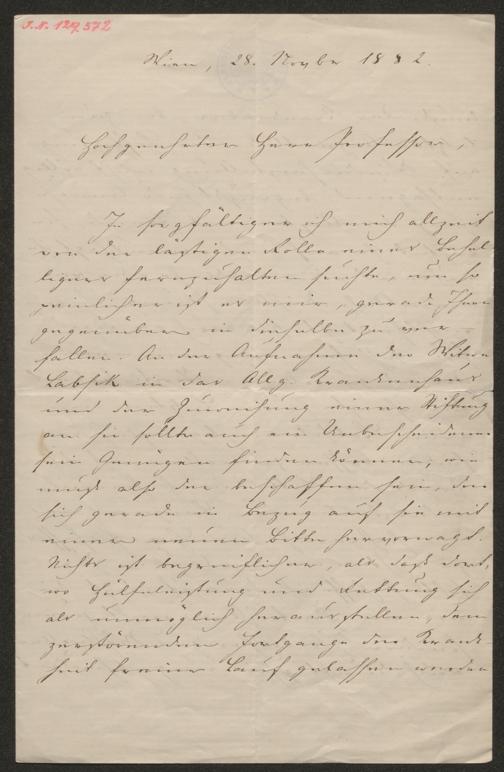 J.N. 129.572
Wien, 28. Novbr 1882.
Hochgeehrter Herr Professor,
Je sorgfältiger ich mich allzeit
von der lästigen Rolle eines Behel-
ligers fernzuhalten suchte, um so
peinlicher ist es mir, gerade Ihnen
gegenüber in dieselbe zu ver-
fallen. An der Aufnahme der Witwe
in das Allg. Krankenhaus
und der Zuweisung einer Stiftung
an sie sollte auch ein Unbescheidener
sein Genügen finden können, wie
muß also der beschaffen sein, der
sich gerade in Bezug auf sie mit
einer neuen Bitte hervorwagt.
Nichts ist begreiflicher, als daß dort,
wo Hülfeleistung und Rettung sich
als unmöglich herausstellen, dem
zerstörenden Fortgange der Krank-
heit freier Lauf gelassen werden